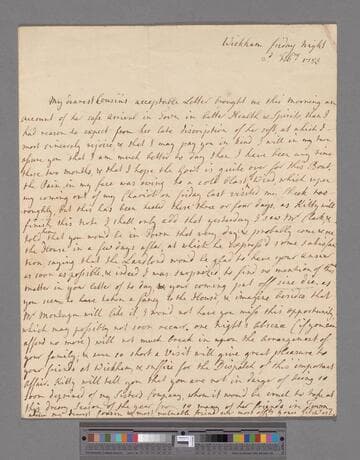 Wickham friday Night
Feb.ry 1783
My dearest Cousins acceptable Letter brought me this Morning an
account of her safe arrival in Town in better Health & Spirits, than I
had reason to expect from her late discription of her self, at which I
most sincerely rejoice & that I may pay you in kind I will in my turn
assure you that I am much better to day than I have been any time
these two months, & that I hope the Gout is quite over for this Bout,
the Pain in my face was owing to a cold Blast of Wind which upon
my coming out of my Chariot on friday last visited my Cheek too
roughly, but this has been better these three or four days, as Kitty will
finish this Note I shall only add that yesterday I saw Mr Clark &
told him you would be in Town that very day & probably come & see
the House in a few days after, at which he expressed some satisfac
tion saying that the Landlord would be glad to have your answer
as soon as possible, & indeed I was surprized to find no mention of this
matter in your Letter of to day & your coming put off sine die, as
you seem to have taken a fancy to the House, & imagine besides that
Mr Montagu will like it I would not have you miss this opportunity
which may possibly not soon occur, one Night's absence (if you can
afford no more) will not much break in upon the arrangement of
your family, & even so short a Visit will give great pleasure to
your friends at Wickham, & suffice for the Dispatch of this important
affair. Kitty will tell you that you are not in danger of being so
soon deprived of my Sister's Company, whom it would be cruel to rob at
this dreary Season of the year from so many of her friends in Town